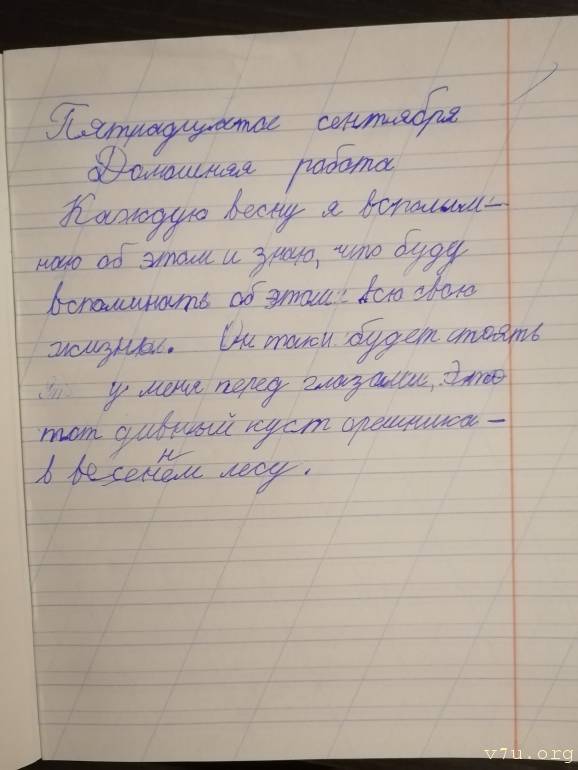 Пятнадцатое сентября
Домашняя работа
Каждую весну я вспоми-
наю об этом и знаю, что буду
вспоминать об этом всю свою
жизнь. Он так и будет стоять
у меня перед глазами, это
тот дивный куст орешника -
в весеннем лесу.
v7u.org